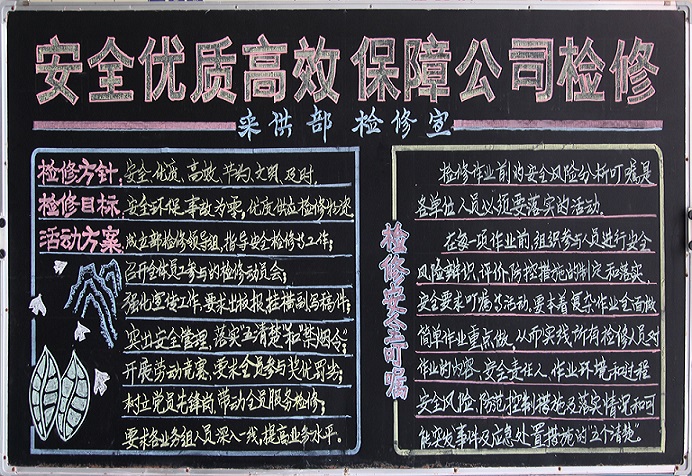 安全优质高效 保障公司检修
采供部 检修宣
检修方针:安全、优质、高效、节约、文明、及时.
检修目标:安全环保事故为零,优质供应检修物资.
活动方案:成立部检修领导组,指导安全检修等工作;
召开全体员工参与的检修动员会;
强化宣传工作,要求出板报挂横副写稿件;
突出安全管理,落实“五清楚”和“禁烟令”;
开展劳动竞赛,要求全员参与奖优罚劣;
树立党员先锋岗,带动全员服务检修;
要求各业务组人员深入一线,提高业务水平.
检修安全叮嘱
检修作业前的安全风险分析叮嘱是
各单位人员必须要落实的活动.
在每一项作业前,组织参与人员进行安全
风险辨识、评价、防控措施的制定和落实,
安全要求叮嘱等活动,要本着复杂作业全面做
简单作业重点做,从而实践所有检修人员对
作业的内容、安全责任人、作业环境和过程
安全风险、防范控制措施及落实情况和可
能突发事件及应急处置措施的“五个清楚”.